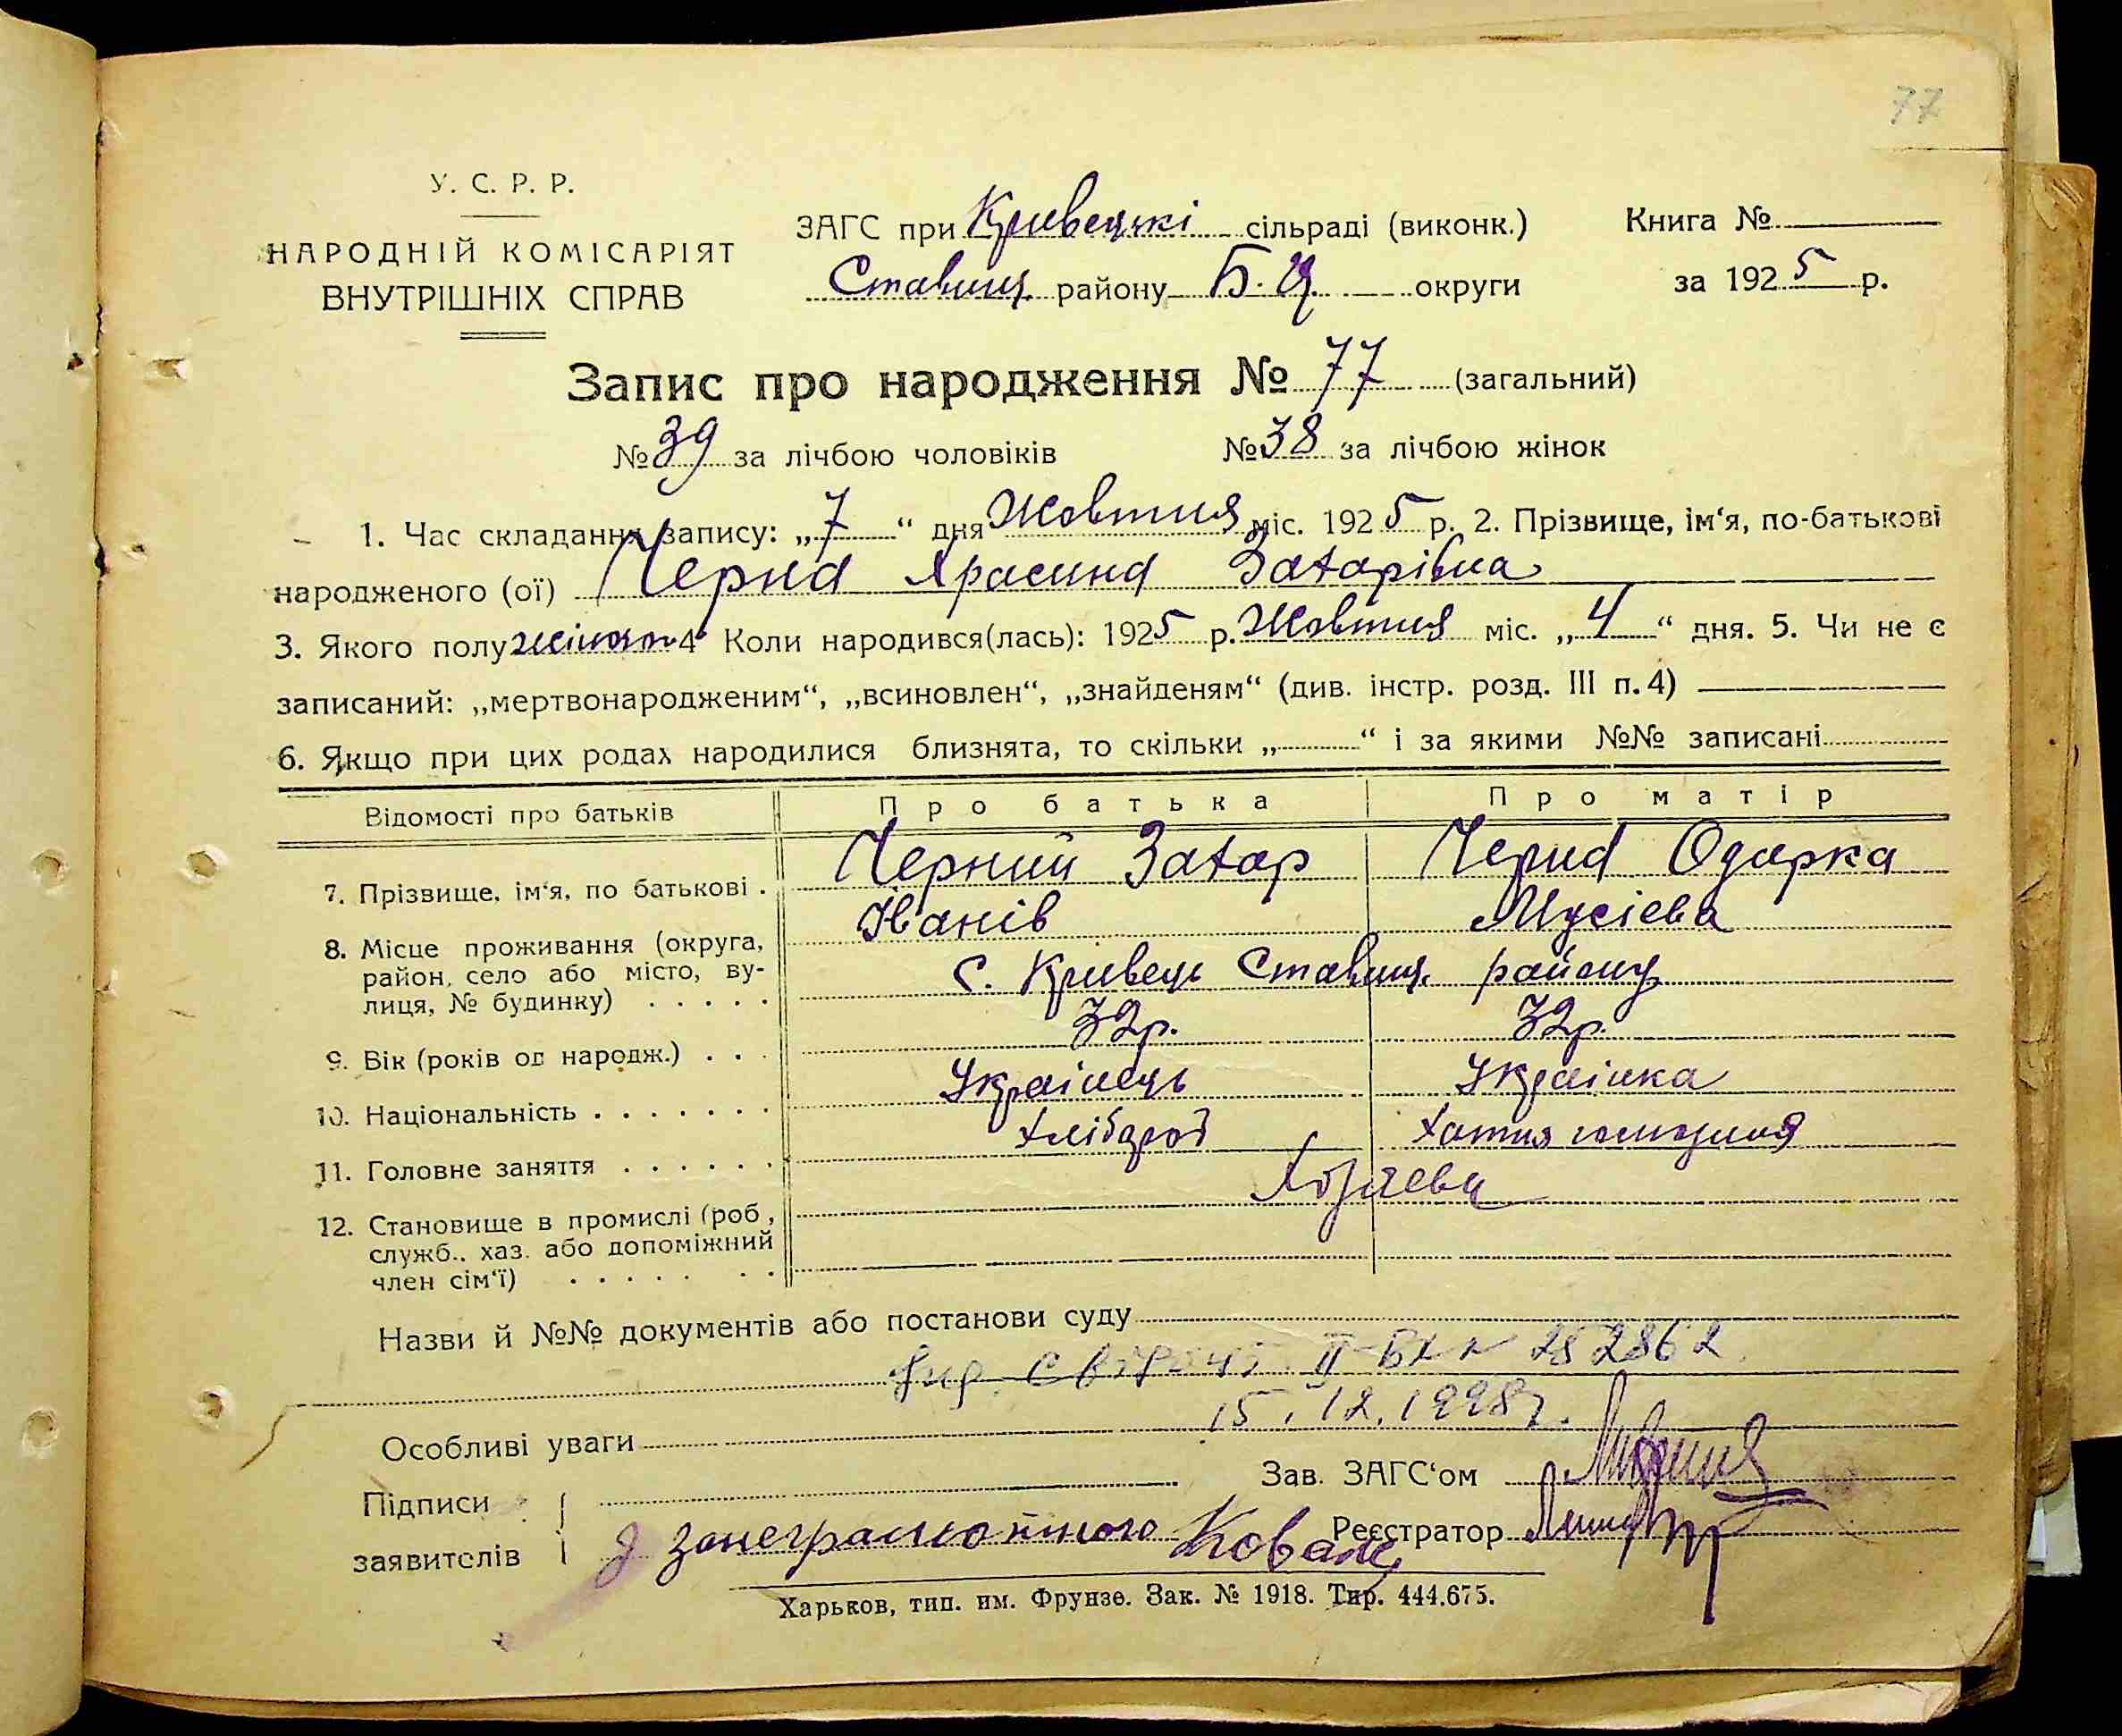 77
У. С. Р. Р.
НАРОДНІЙ КОМІСАРІЯТ
ВНУТРІШНІХ СПРАВ
ЗАГС при Кривецькі сільраді (виконк.)
Ставищ. району Б. Ц. округи
Книга №
за 1925 р.
Запис про народження № 77 (загальний)
№ 39 за лічбою чоловіків № 38 за лічбою жінок
1. Час складання запису: „7“ дня Жовтня міс. 1925 р. 2. Прізвище, ім‘я, по-батькові
народженого (ої) Черна Захарівна
3. Якого полу 4 Коли народився(лась): 1925 р. Жовтня міс. „4“ дня. 5. Чи не є
записаний: „мертвонародженим“, „всиновлен“, „знайденям“ (див. інстр. розд. III п. 4)
6. Якщо при цих родах народилися близнята, то скільки „ “ і за якими №№ записані
Відомості про батьків Про батька Про матір
7. Прізвище, ім‘я, по батькові . Черний Захар Черна Одарка
Іванів Мусієва
8. Місце проживання (округа,
район, село або місто, ву-
лиця, № будинку) . . . . . С. Кривець Ставищ. району
9. Вік (років од народж.) . . . 32р. 32р.
10. Національність . . . . . . . Українець Українка
11. Головне заняття . . . . . . Хлібороб Хатня
12. Становище в промислі (роб.,
служб., хаз. або допоміжний
член сім‘ї) . . . . . . .
Назви й №№ документів або постанови суду
II-БК № 252862
15.12.1998г.
Особливі уваги
Зав. ЗАГС‘ом
Підписи
заявителів
За неграмотного Коваль
Реєстратор
Харьков, тип. им. Фрунзе. Зак. № 1918. Тир. 444.675.